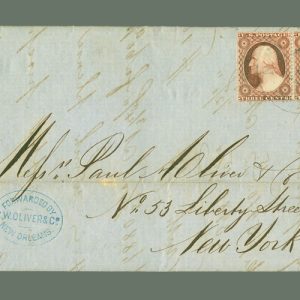 U.S. POSTAGE
THREE CENTS
Messrs. Paul J. Oliver & C
No. 53 Liberty Stree
New York
FORWARDED BY
W. OLIVER & Co.
NEW ORLEANS.